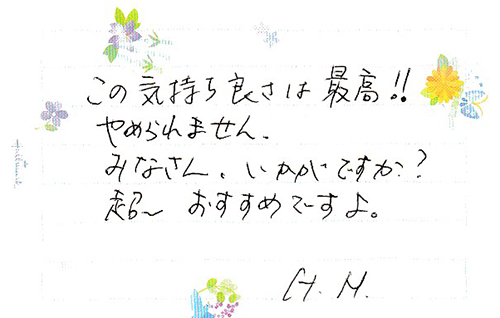 この気持ち良さは最高!!
やめられません、
みなさん、いかがですか?
超〜 おすすめですよ。
H. M.
Hallmark